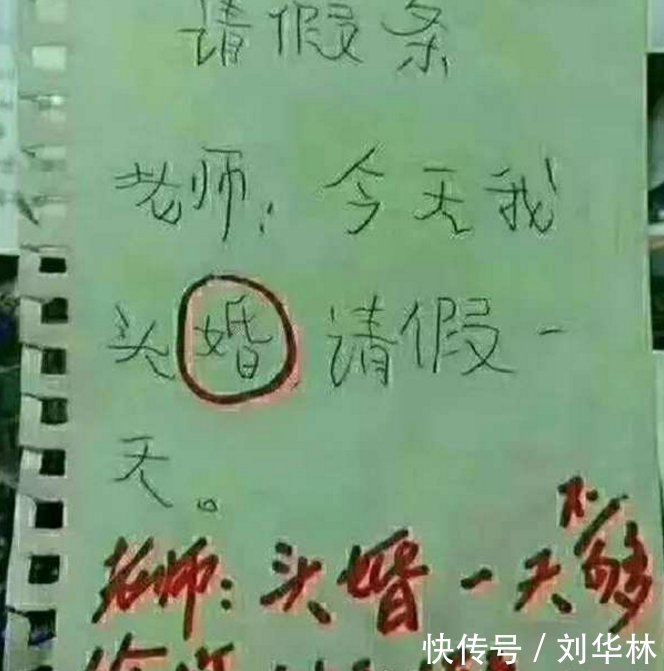 请假条
老师：今天我
头婚请假一
天。
老师：头婚一天不够
快传号 / 刘华林